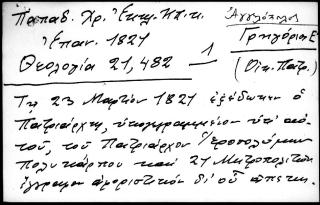 Παπαδ. Χρ. Ἐκκλ. Ἱστ. κ.
Ἐπαν. 1821
Θεολογία 21, 482 — 1
Ἀγγελόπουλος
Γρηγόριος Ε'
(Οἰκ. Πατρ.)
Τῇ 23 Μαρτίου 1821 ἐξεδόθη ὁ
Πατριάρχης, ὑπογεγραμμένον ὑπ' αὐ-
τοῦ, τοῦ Πατριάρχου Ἱεροσολύμων
Πολυκάρπου καὶ 21 Μητροπολιτῶν
ἔγγραφον ἀφοριστικὸν δι' οὗ